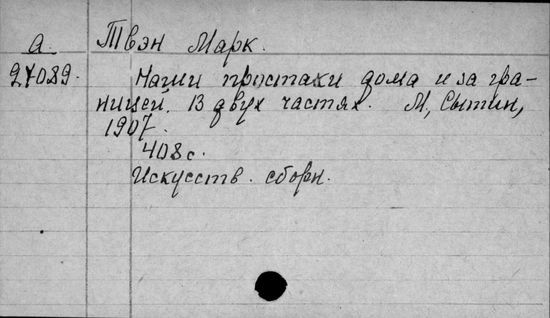 А. Твэн Марк.
27089. Наши простаки дома и за гра-
ницей. В двух частях. М, Сытин,
1907.
408 с.
Искусств. сборн.